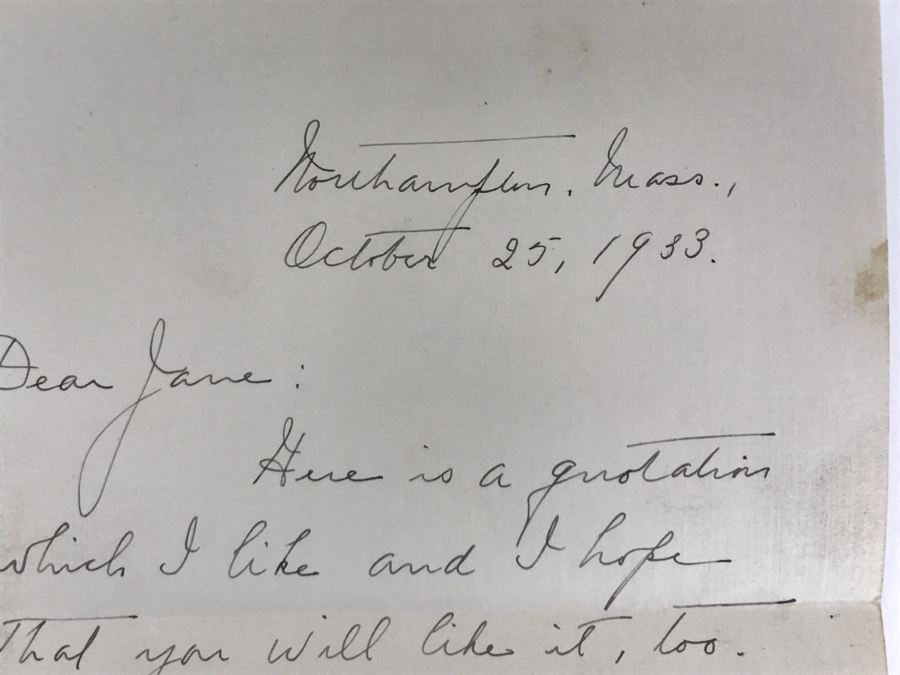 Northampton, Mass.,
October 25, 1933.
Dear Jane:
Here is a quotation
which I like and I hope
that you will like it, too.